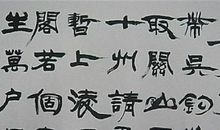 帶吳鉤
取關山
十州請
暫上凌
閣若個
生萬户